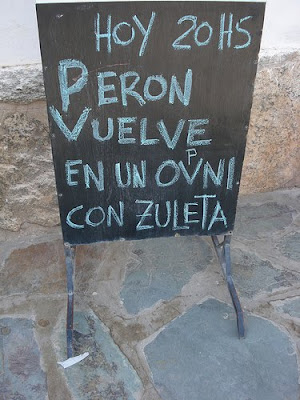 HOY 20HS
PERON
VUELVE
EN UN OVPNI
CON ZULETA